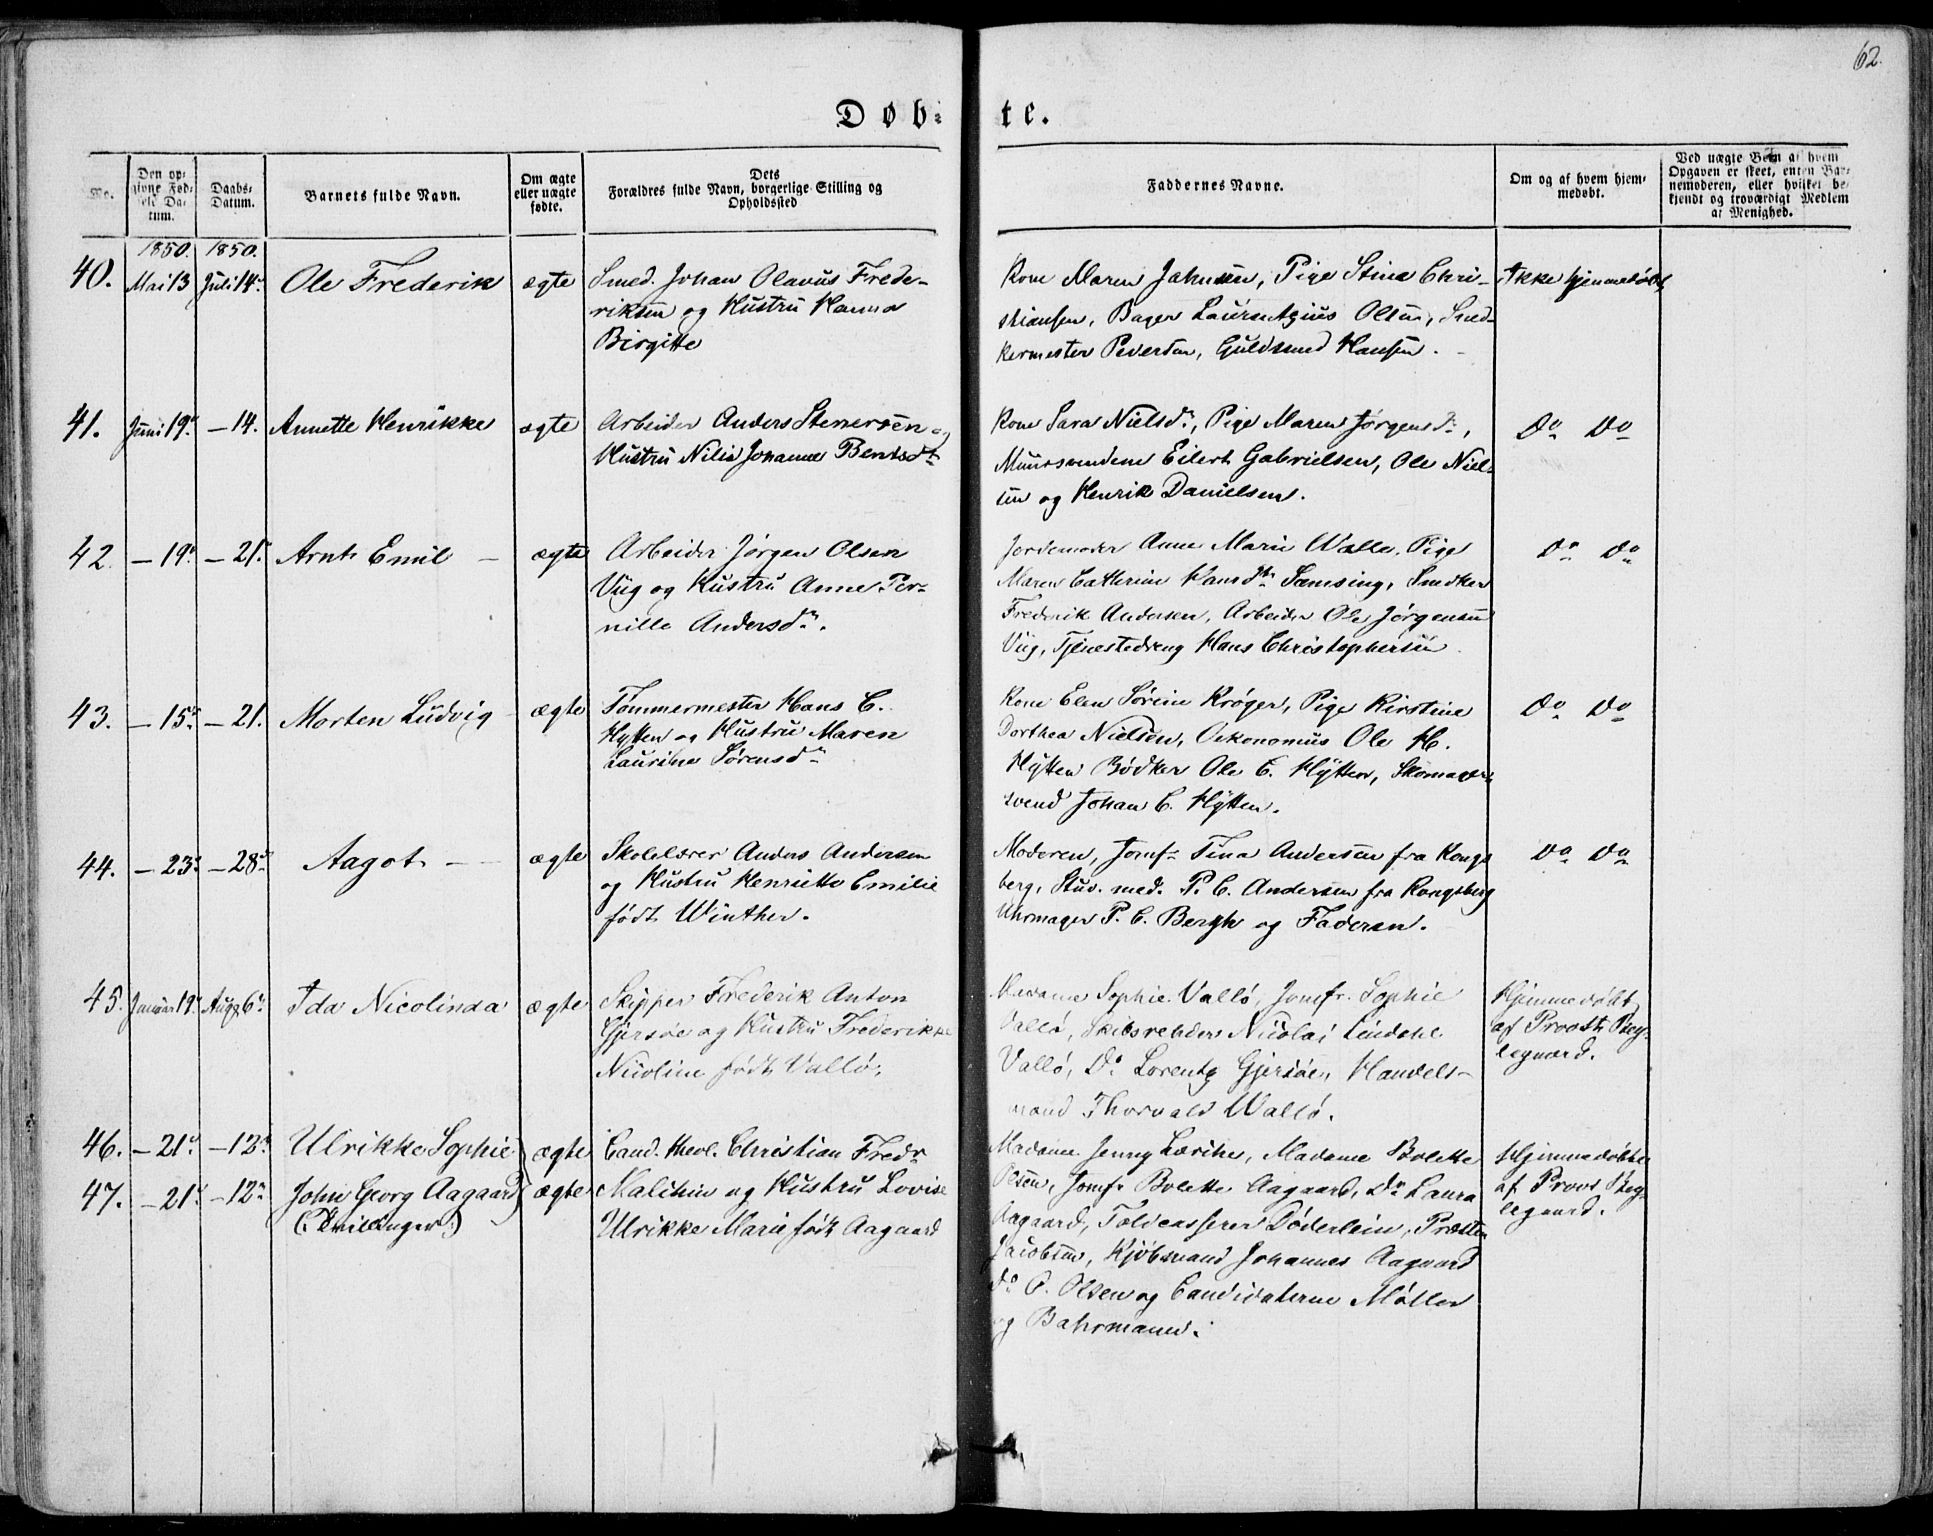 62.
Døb-te.
No.
Den op-
givne Fød-
sels Da-
tum.
Daabs-
Datum.
Barnets fulde Navn.
Om ægte
eller uægte
fødte.
Dets
Forældres fulde Navn, borgerlige Stilling og
Opholdssted
Faddernes Navne.
Om og af hvem hjem-
medøbt.
Ved uægte Børn af hvem
Opgaven er skeet, enten Bar-
nemoderen, eller hvilket be-
kjendt og troværdigt Medlem
af Menighed.
1850. 1850.
40. Mai 13 Juli 14de Ole Frederik ægte Smed. Johan Olavus Frede-
riksen og Hustru Hanna
Birgitte
Kone Maren Jahnsen, Pige Stina Chri-
stiansen, Bager Laurentzius Olsen, Sned-
kermester Pedersen, Guldsmed Hansen.
Ikke hjemmedøbt.
41. Juni 19de - 14. Annette Henrikke ægte Arbeider Anders Stenersen og
Hustru Nilia Johanne Bentsdtr
Kone Sara Nielsdr, Pige Maren Jørgensdr,
Muursvendene Eilert Gabrielsen, Ole Niel-
sen og Henrik Danielsen.
Do Do
42. - 19de - 21de Arnt Emil - ægte Arbeider Jørgen Olsen
Viig og Hustru Anne Per-
nille Andersdr.
Jordemoder Anne Marie Walle, Pige
Maren Cathrine Hansdtr Samsing, Snedker
Frederik Andersen, Arbeider Ole Jørgensen
Viig, Tjenestedreng Hans Christophersen.
Do Do
43. - 15de - 21. Morten Ludvig - ægte Tømmermester Hans C.
Hytten og Hustru Maren
Laurine Sørensdr
Kone Elen Sørine Krøger, Pige Kirstine
Dorthea Nielsen, Oekonomus Ole H.
Hytten Bødker Ole C. Hytten, Skomager-
svend Johan C. Hytten.
Do Do
44. - 23de - 28de Aagot - ægte Skolelærer Anders Andersen
og Hustru Henriette Emilie
født Winther.
Moderen, Jomfr Tina Andersen fra Kongs
berg, Stud. med. P. C. Andersen fra Kongsberg
Uhrmager P. C. Bergh og Faderen.
Do Do
45. Januar 19de Augs 6te Ida Nicolinda ægte Skipper Frederik Anton
Gjersøe og Hustru Frederikke
Nicoline født Vallø.
Madame Sophie Vallø, Jomfr. Sophie
Vallø, Skibsrheder Nicolai Lindahl
Vallø, Do Lorentz Gjersøe, Handels-
mand Thorvald Wallø.
Hjemmedøbt
af Provst Bey-
legaard.
46. - 21de - 12te Ulrikke Sophie ægte Cand. theol. Christian Fredr
47. - 21de - 12te John Georg Aagaard ægte Malthin og Hustru Lovise
(:Tvillinger:) Ulrikke Marie født Aagaard
Madame Jenny, Madame Bolette
Olsen, Jomfr Bolette Aagaard, Do Laura
Aagaard, Toldcasserer Døderlein, Præsten
Jacobsen, Kjøbmand Johannes Aagaard
Do O. Olsen og Candidaterne Møller
og Bahrmann.
Hjemmedøbte
af Provst Bey-
legaard.